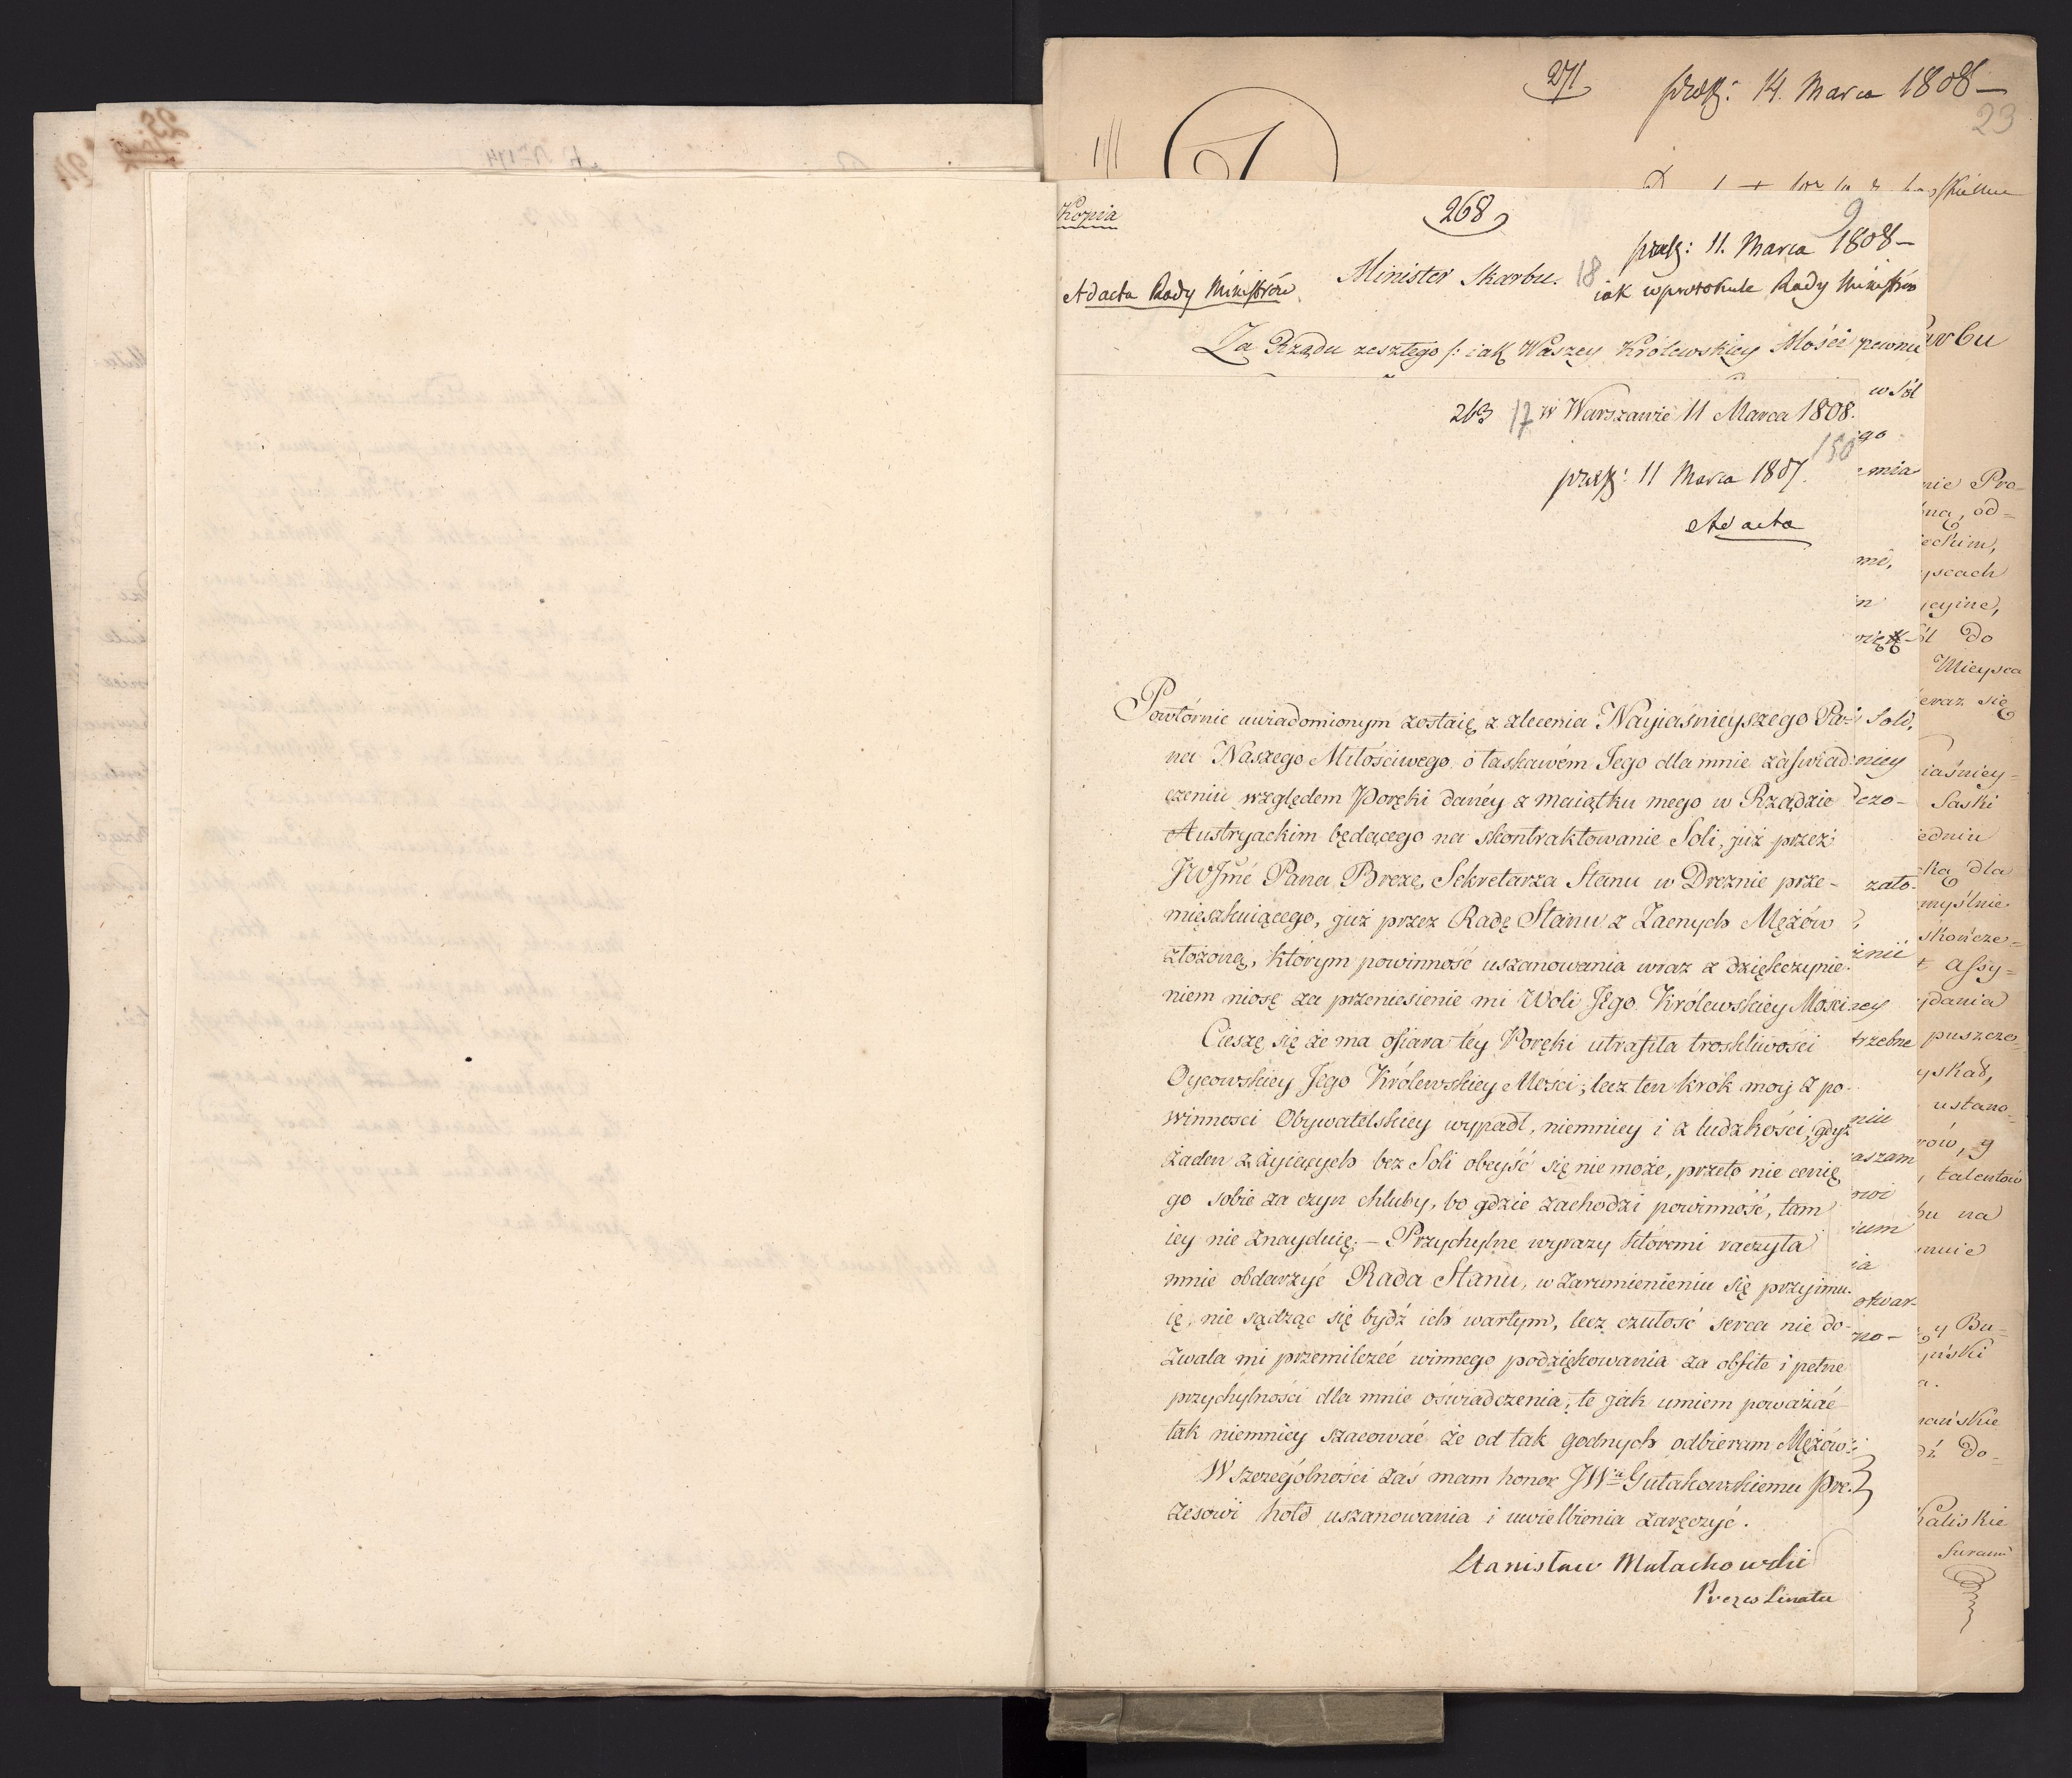 271
praes: 14. Marca 1808 —
23
Kopia
268
9
praes: 11. Marca 1808 —
Minister Skarbu.
18
Ad acta Rady Ministrów
iak w protokule Rady Ministrów
Za Rządu zeszłego /: iak Waszey Królewskiey Mości pewnie
263 17 w Warszawie 11 Marca 1808.
150
praes: 11 Marca 1807.
Ad acta
Powtórnie uwiadomionym zostaię z zlecenia Nayiaśnieyszego Pa-
na Naszego Miłościwego o łaskawém Jego dla mnie zaświad-
czeniu względem Poręki danéy z maiątku mego w Rządzie
Austryackim będącego na skontraktowanie Soli, już przez
JWJmé Pana Brezę, Sekretarza Stanu w Dreznie prze-
mięszkuiącego, już przez Radę Stanu z Zacnych Mężów
złożoną, którym powinność uszanowania wraz z dziękczynie-
niem niosę za przeniesienie mi Woli Jego Królewskiey Mości
Cieszę się że ma ofiara téy Poręki utrafiła troskliwości
Oycowskiey Jego Królewskiey Mości; lecz ten krok moy z po-
winności Obywatelskiey wypadł, niemniey i z ludzkości, gdyż
żaden z żyiących bez Soli obeyść się nie może, przeto nie cenię
go sobie za czyn chluby, bo gdzie zachodzi powinność, tam
iey nie znayduię. — Przychylne wyrazy któremi raczyła
mnie obdarzyć Rada Stanu, w zarumienieniu się przyimu-
ię, nie sądząc się bydź ich wartym, lecz czułość serca nie do-
zwala mi przemilczéć winnego podziękowania za obfite i pełne
przychylności dla mnie oświadczenia, te jak umiem poważać
tak niemniey szacować że od tak godnych odbieram Mężów.
W szczególności zaś mam honor JWu Gutakowskiemu Pre-
zesowi hołd uszanowania i uwielbienia zaręczyć.
Stanisław Małachowski
Prezes Senatu
w Sól
mia
Sold,
niey
czo-
zało-
żnii
trzebne
niu
aszam
otwar-
zno-
arbu
nie Pro-
bna, od-
eckim,
ypcach
cyine,
ól do
Mieysca
eraz się
iaśniey-
Saski
iedniu
ka dla
myślnie
skończe-
assy-
ydania
puszcze-
yskad,
ustano-
rów, y
talentów
bu na
mnie
y Bu-
yński
nańskie
dź do-
Kaliskie